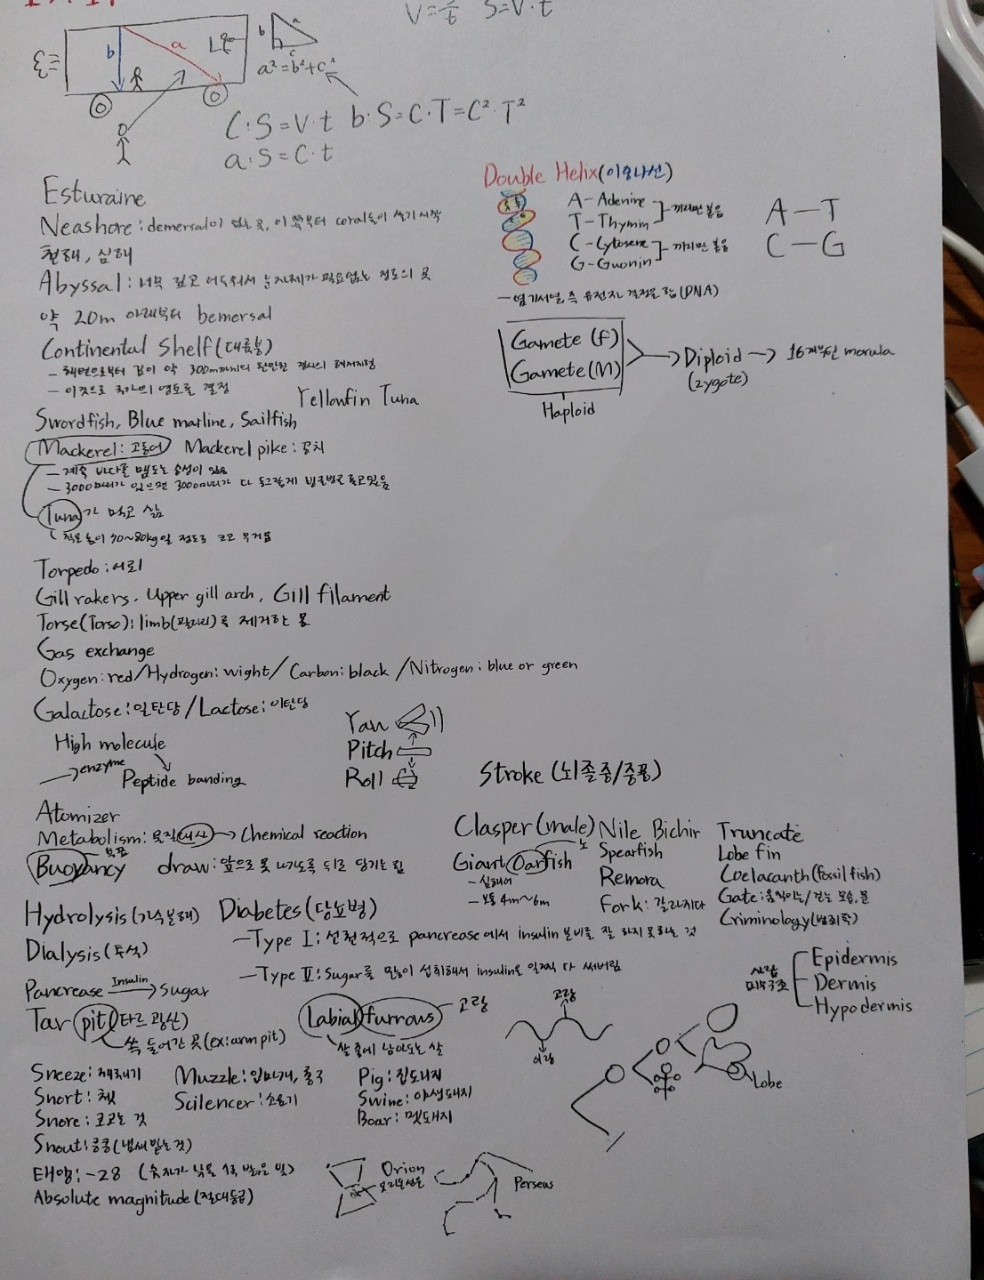 V=S/t S=V·t
b
a
b
c
a²=b²+c²
C: S=V·t b·S=C·T=C²·T²
a:S=C·t
Esturaine
Neashore: demersal이 없는 곳, 이 쪽부터 coral들이 살기 시작
천해, 심해
Abyssal: 너무 깊고 어두워서 눈 자체가 필요없는 정도의 곳
약 20m 아래부터 bemersal
Continental Shelf(대륙붕)
- 해변으로부터 깊이 약 300m까지의 완만한 경사의 해저지형
- 이것으로 국가의 영토를 결정
Yellowfin Tuna
Swordfish, Blue marline, Sailfish
Mackerel: 고등어 Mackerel pike: 꽁치
- 계속 바다를 맴도는 습성이 있음
- 3000마리가 있으면 3000마리가 다 동그랗게 빙글빙글 돌고있음
Tuna가 먹고 삶
작은 놈이 70~80kg일 정도로 크고 무거움
Torpedo: 어뢰
Gill rakers, Upper gill arch, Gill filament
Torse(Torso): limb(팔다리)를 제거한 몸
Gas exchange
Oxygen: red/Hydrogen: wight/Carbon: black/Nitrogen: blue or green
Galactose: 일탄당/Lactose: 이탄당
High molecule
enzyme
Peptide banding
Yaw
Pitch
Roll
Atomizer
Metabolism: 물질대사 → Chemical reaction
부표
Buoyancy draw: 앞으로 못 나가도록 뒤로 당기는 힘
Hydrolysis(가수분해) Diabetes(당뇨병)
Dialysis(투석)
- Type I: 선천적으로 pancrease에서 insulin 분비를 잘 하지 못하는 것
- Type II: Sugar를 많이 섭취해서 insulin을 일찍 다 써버림
Pancrease Insulin → Sugar
Tar pit(타르 광산)
쏙 들어간 곳(ex: arm pit)
Labial furrows - 고랑
고랑
이랑
Sneeze: 재채기
Snort: 쳇
Snore: 코고는 것
Snout: 킁킁(냄새 맡는 것)
Muzzle: 입마개, 총구
Scilencer: 소음기
Pig: 집돼지
Swine: 야생돼지
Boar: 멧돼지
태양: -28
Absolute magnitude(절대등급)
Orion
Perseus
Double Helix(이중나선)
A-Adenine
T-Thymin
끼리만 붙음
C-Cytosine
G-Guanin
끼리만 붙음
A-T
C-G
- 염기서열, 즉 유전자 결정을 함(DNA)
Gamete (F)
Gamete(M)
Haploid
→ Diploid → 16개부턴 morula
(zygote)
Stroke(뇌졸중/중풍)
Clasper(male) Nile Bichir Truncate
노
Giant Oarfish
- 심해어
- 보통 4m~6m
Spearfish
Remora
Fork: 갈라지다
Lobe fin
Coelacanth(fossil fish)
Gate: 움직이는/걷는 모습, 문
Criminology(범죄학)
사람
피부구조
Epidermis
Dermis
Hypodermis
Lobe